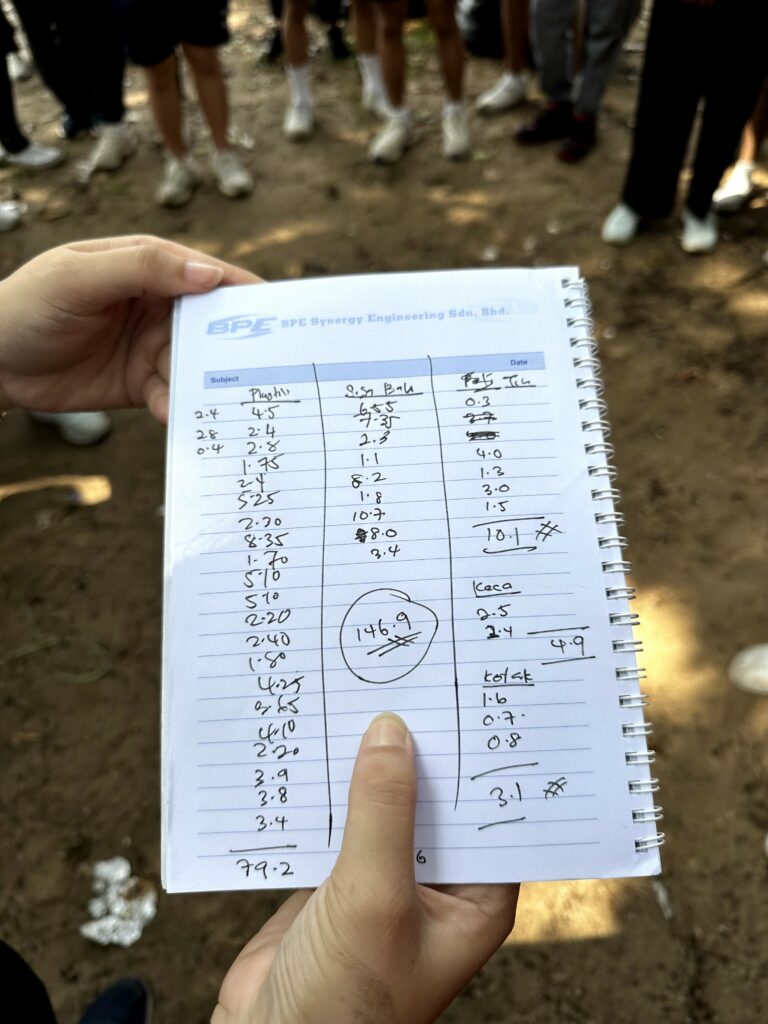 BPE BPE Synergy Engineering Sdn. Bhd.
Subject
Date
Plastik
2.4 4.5
2.8 2.4
0.4 2.8
1.75
2.4
5.25
2.20
8.35
1.70
5.10
5.10
2.20
2.40
1.80
4.25
4.10
2.20
3.9
3.8
3.4
79.2
6.55
7.35
2.3
1.1
8.2
1.8
10.7
8.0
3.4
146.9
Tin
0.3
4.0
1.3
3.0
1.5
10.1
Kaca
2.5
2.4
4.9
Kotak
1.6
0.7
0.8
3.1
6